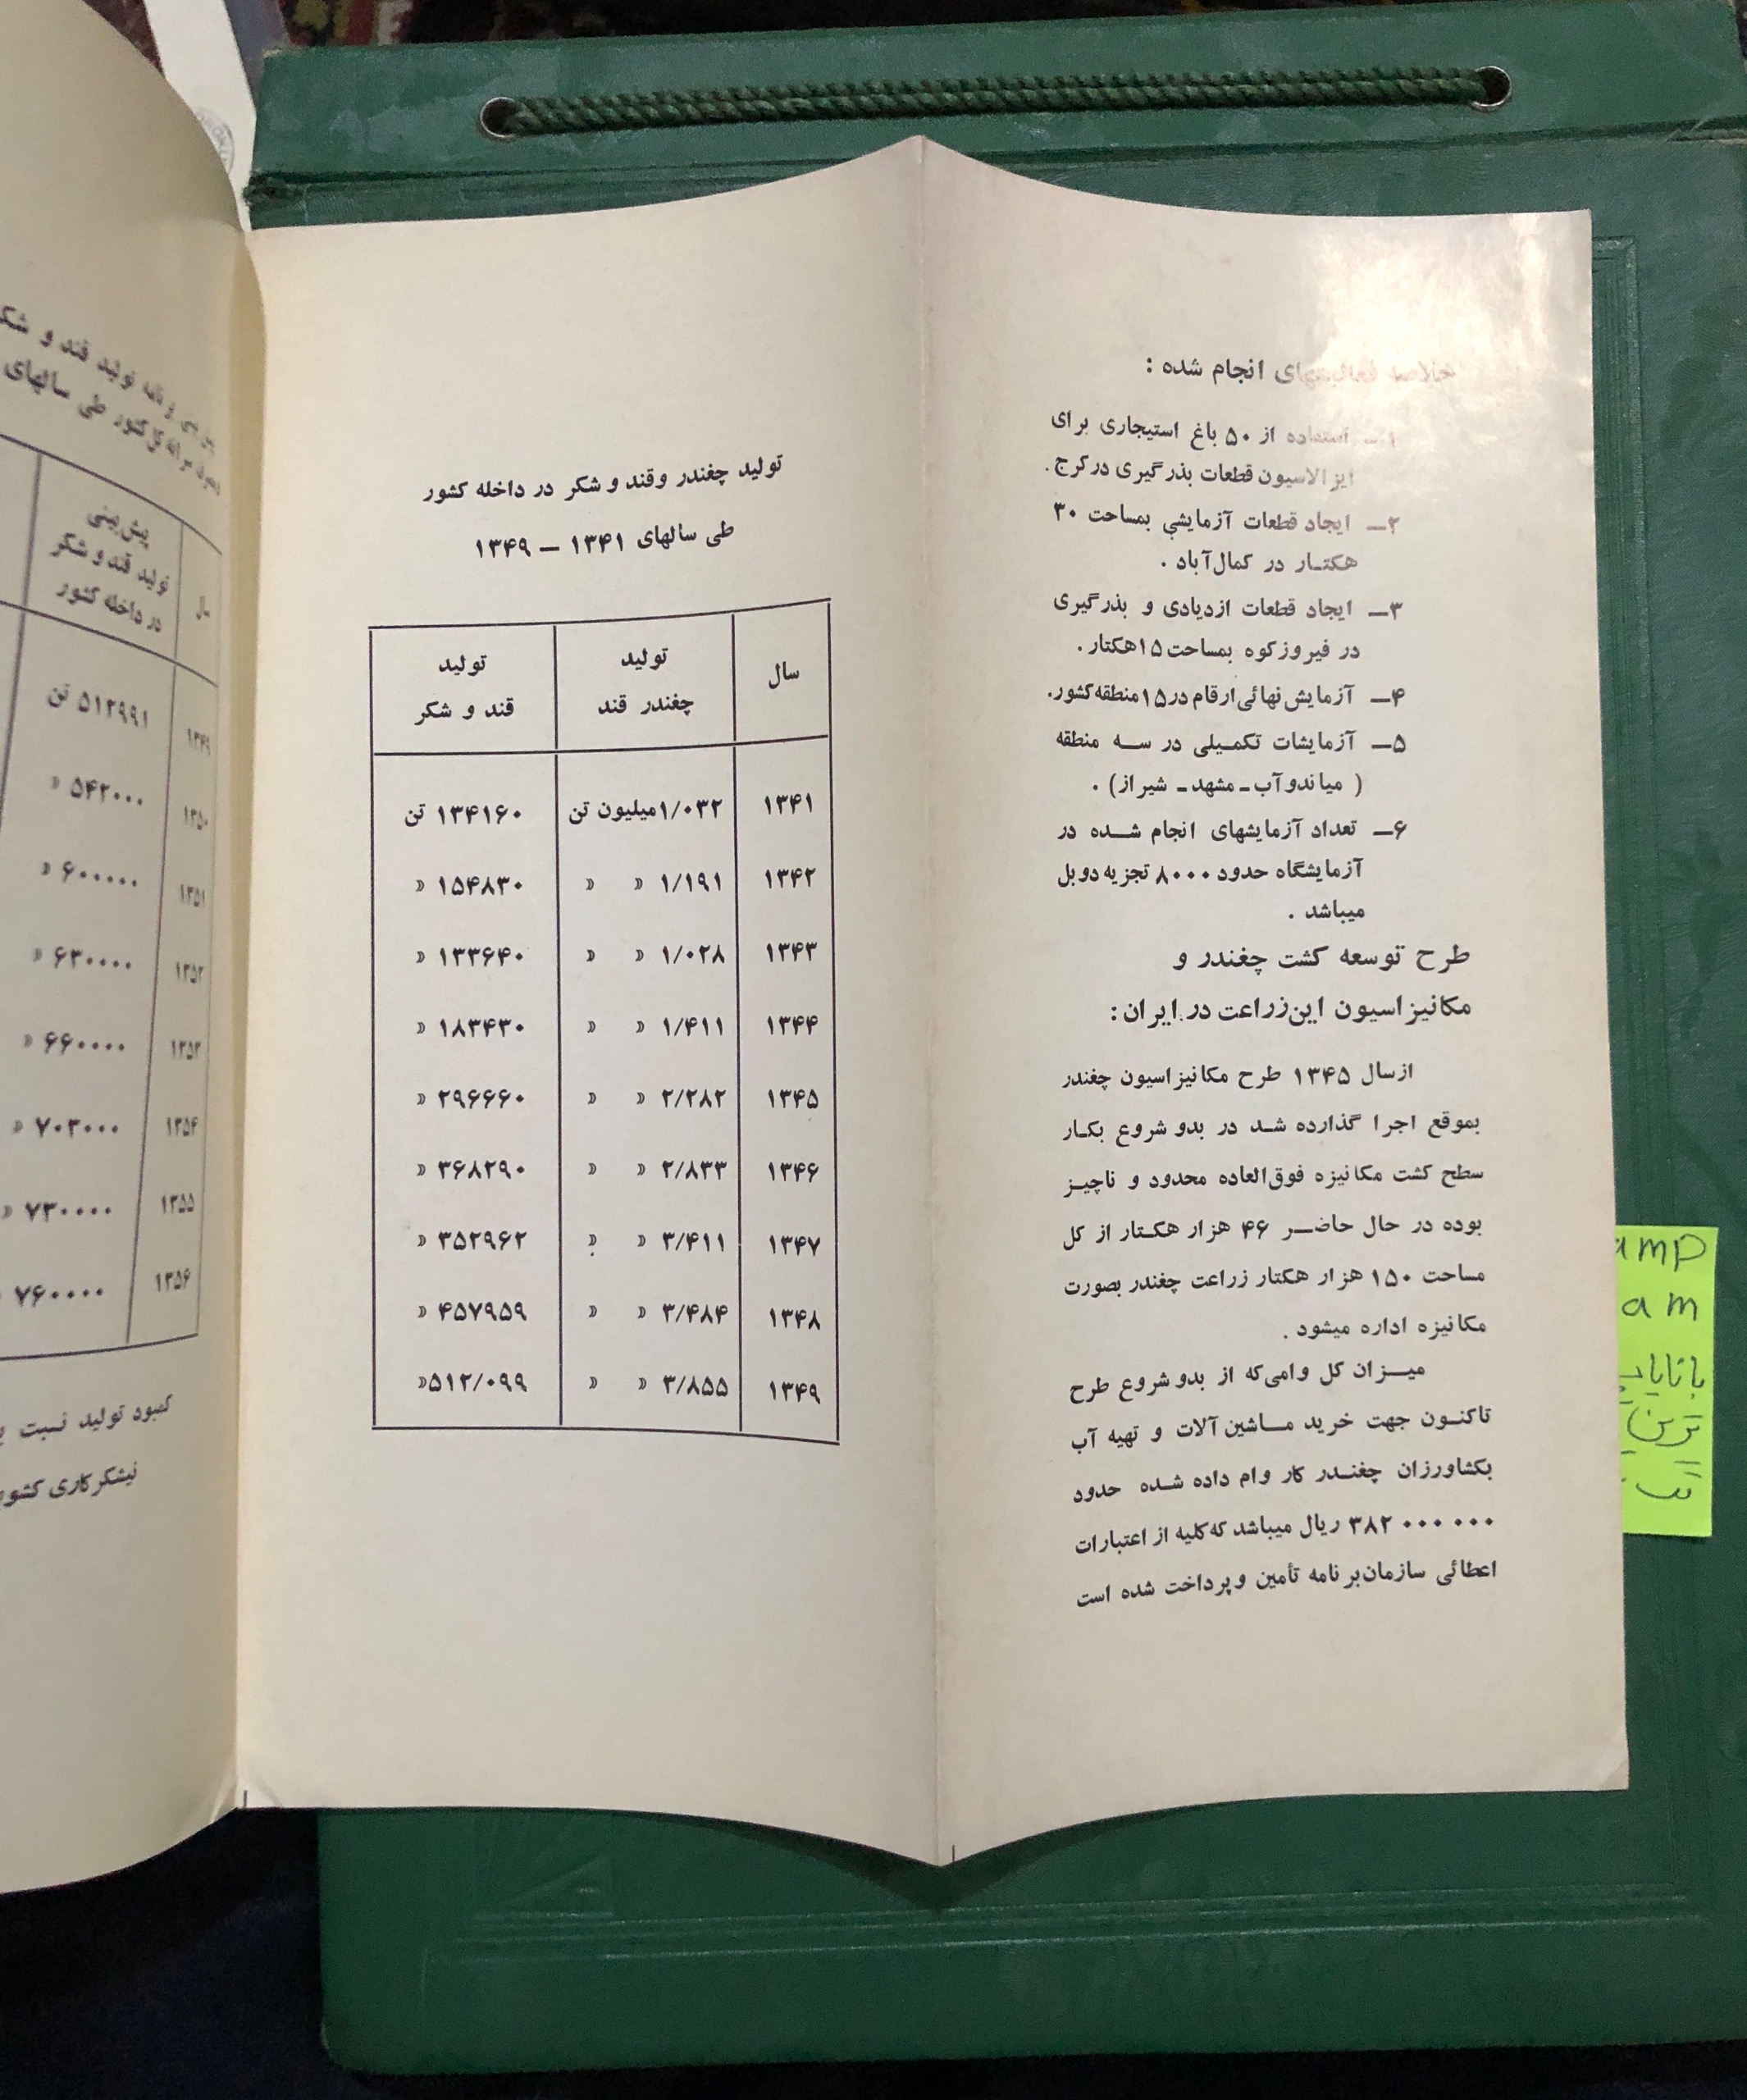 خلاصه فعالیتهای انجام شده :
۱ــ استفاده از ۵۰ باغ استیجاری برای
ایزالاسیون قطعات بذرگیری درکرج .
۲ــ ایجاد قطعات آزمایشی بمساحت ۳۰
هکتـار در کمال‌آباد .
۳ــ ایجاد قطعات ازدیادی و بذرگیری
در فیروزکوه بمساحت ۱۵هکتار .
۴ــ آزمایش نهائی ارقام در۱۵منطقه‌کشور.
۵ــ آزمایشات تکمـیلی در سـه منطقه
( میاندوآب ـ مشهد ـ شیراز) .
۶ــ تعداد آزمایشهای انجام شـده در
آزمایشگاه حدود ۸۰۰۰ تجزیه دوبل
میباشد .
طرح توسعه کشت چغندر و
مکانیزاسیون این‌زراعت در ایران :
ازسال ۱۳۴۵ طرح مکانیزاسیون چغندر
بموقع اجرا گذارده شـد در بدو شروع بکـار
سطح کشت مکانیزه فوق‌العاده محدود و ناچیـز
بوده در حال حاضــر ۴۶ هزار هکـتار از کل
مساحت ۱۵۰ هزار هکتار زراعت چغندر بصورت
مکانیزه اداره میشود .
میــزان کل وامی‌که از بدو شروع طرح
تاکنـون جهت خرید مـاشین‌آلات و تهیه آب
بکشاورزان چغنـدر کار وام داده شده حدود
۳۸۲ ۰۰۰ ۰۰۰ ریال میباشد که‌کلیه از اعتبارات
اعطائی سازمان‌برنامه تأمین وپرداخت شده است
تولید چغندر وقند و شکر در داخله کشور
طی سالهای ۱۳۴۱ – ۱۳۴۹
سال تولید چغندر قند تولید قند و شکر
۱۳۴۱ ۱/۰۳۲میلیون تن ۱۳۴۱۶۰ تن
۱۳۴۲ ۱/۱۹۱ » » ۱۵۴۸۳۰ »
۱۳۴۳ ۱/۰۲۸ » » ۱۳۳۶۴۰ »
۱۳۴۴ ۱/۴۱۱ » » ۱۸۳۴۳۰ »
۱۳۴۵ ۲/۲۸۲ » » ۲۹۶۶۶۰ »
۱۳۴۶ ۲/۸۳۳ » » ۳۶۸۲۹۰ »
۱۳۴۷ ۳/۴۱۱ » » ۳۵۲۹۶۲ »
۱۳۴۸ ۳/۴۸۴ » » ۴۵۷۹۵۹ »
۱۳۴۹ ۳/۸۵۵ » » ۵۱۲/۰۹۹»
تولید قند و شکر
کل کشور طی سالهای
سال پیش‌بینی تولید قند و شکر در داخله کشور
۱۳۴۹ ۵۱۲۹۹۱ تن
۱۳۵۰ ۵۴۲۰۰۰ »
۱۳۵۱ ۶۰۰۰۰۰ »
۱۳۵۲ ۶۳۰۰۰۰ »
۱۳۵۳ ۶۶۰۰۰۰ »
۱۳۵۴ ۷۰۳۰۰۰ »
۱۳۵۵ ۷۳۰۰۰۰ »
۱۳۵۶ ۷۶۰۰۰۰
کمبود تولید نسبت
نیشکرکاری کشور
amp
am